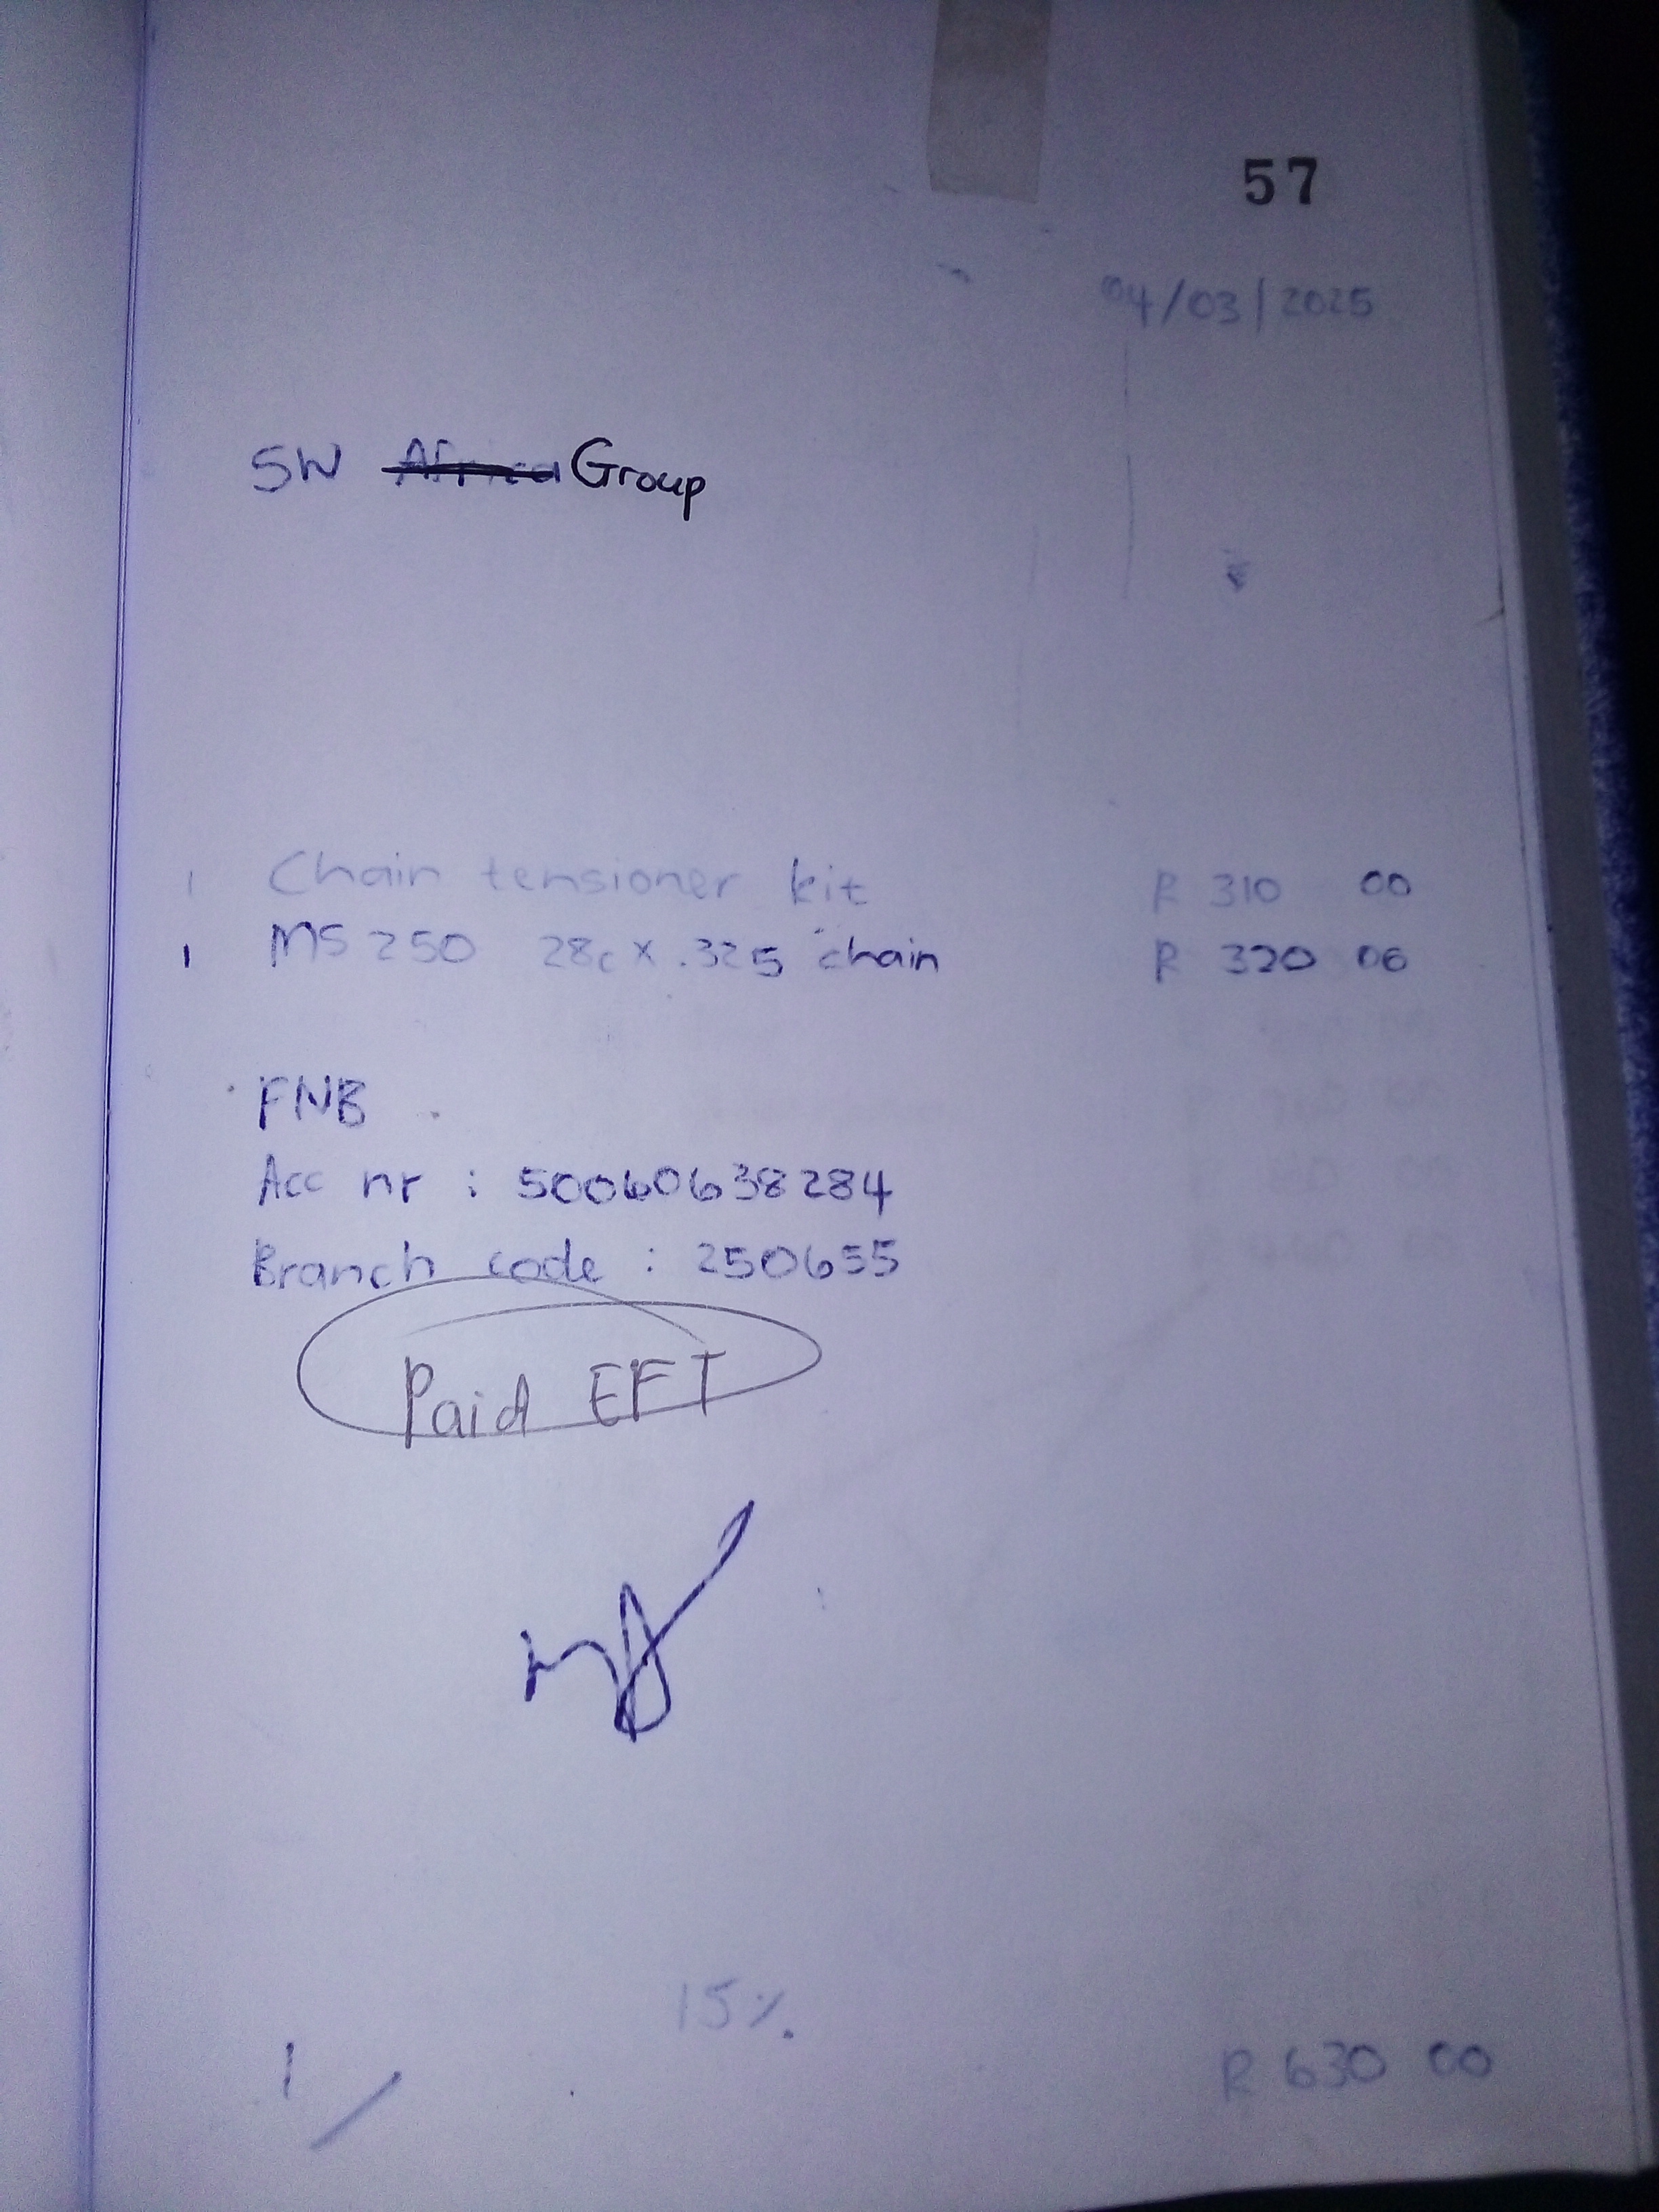 57
04/03/2025
SW Africa Group
1 Chain tensioner kit R 310 00
1 MS 250 28c x .325 chain R 320 00
FNB
Acc nr : 50060638284
Branch code : 250655
Paid EFT
15%
1/
R 630 00